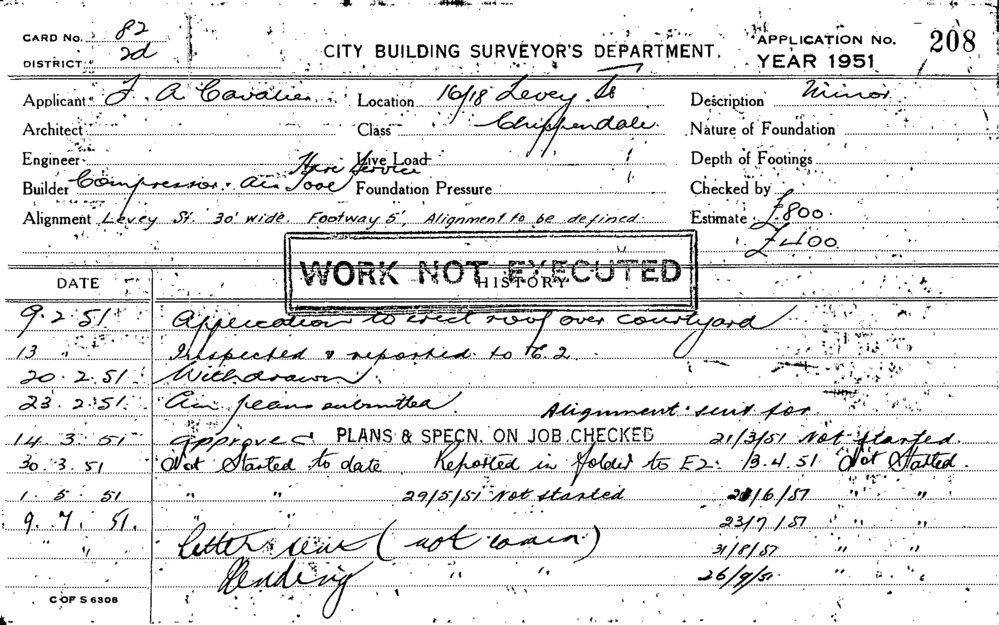 CARD No. 82
DISTRICT 2d
CITY BUILDING SURVEYOR'S DEPARTMENT.
APPLICATION No. 208
YEAR 1951
Applicant F. A. Cavalier Location 16/18 Levey St Description Minor
Architect Class Chippendale Nature of Foundation
Engineer Live Load Depth of Footings
Hire Service
Builder Compressor Air Tool Foundation Pressure Checked by
Alignment Levey St. 30' wide Footway 5', Alignment to be defined Estimate £800
£400
WORK NOT EXECUTED
DATE HISTORY
9.2.51 Application to erect roof over courtyard
13 " Inspected & reported to E.2.
20.2.51 Withdrawn
23.2.51 Am plans submitted. Alignment sent for
14.3.51 approved PLANS & SPECN. ON JOB CHECKED 21/3/51 Not started.
30.3.51 Not Started to date Reported in folder to E2. 13.4.51 Not Started.
1.5.51 " " 29/5/51 Not started 21/6/51 " "
9.7.51. " " 23/7/51 " "
" " Letter sent (not ) 31/8/51 " "
Pending " " 26/9/51. " "
C OF S 6306